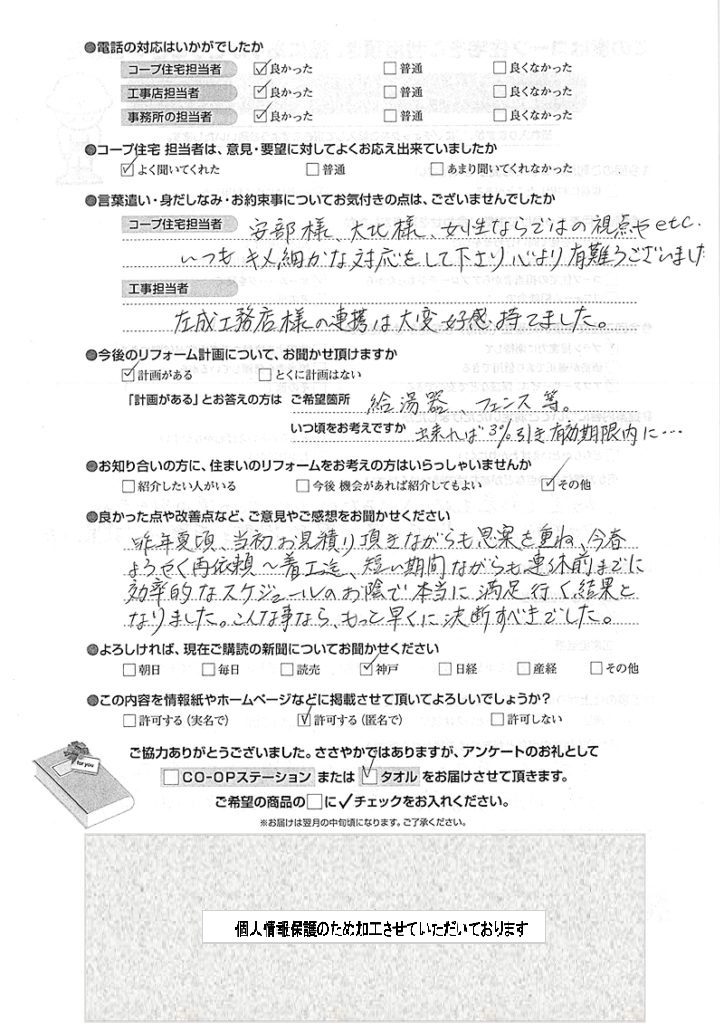 ●電話の対応はいかがでしたか
コープ住宅担当者 ☑良かった □普通 □良くなかった
工事店担当者 ☑良かった □普通 □良くなかった
事務所の担当者 ☑良かった □普通 □良くなかった
●コープ住宅 担当者は、意見・要望に対してよくお応え出来ていましたか
☑よく聞いてくれた □普通 □あまり聞いてくれなかった
●言葉遣い・身だしなみ・お約束事についてお気付きの点は、ございませんでしたか
コープ住宅担当者 安部様、大北様、女性ならではの視点やetc.
いつもキメ細かな対応をして下さり心より有難うございました
工事担当者
左成工務店様の連携は大変好感持てました。
●今後のリフォーム計画について、お聞かせ頂けますか
☑計画がある □とくに計画はない
「計画がある」とお答えの方は ご希望箇所 給湯器 フェンス等。
いつ頃をお考えですか 出来れば3%引き有効期限内に…
●お知り合いの方に、住まいのリフォームをお考えの方はいらっしゃいませんか
□紹介したい人がいる □今後 機会があれば紹介してもよい ☑その他
●良かった点や改善点など、ご意見やご感想をお聞かせください
昨年夏頃、当初お見積り頂きながらも思案を重ね、今春
ようやく再依頼〜着工迄、短い期間ながらも連休前までに
効率的なスケジュールのお陰で本当に満足行く結果と
なりました。こんな事なら、もっと早くに決断すべきでした。
●よろしければ、現在ご購読の新聞についてお聞かせください
□朝日 □毎日 □読売 ☑神戸 □日経 □産経 □その他
●この内容を情報紙やホームページなどに掲載させて頂いてよろしいでしょうか?
□許可する(実名で) ☑許可する(匿名で) □許可しない
for you
ご協力ありがとうございました。ささやかではありますが、アンケートのお礼として
□CO-OPステーション または ☑タオル をお届けさせて頂きます。
ご希望の商品の□に✓チェックをお入れください。
※お届けは翌月の中旬頃になります。ご了承ください。
個人情報保護のため加工させていただいております